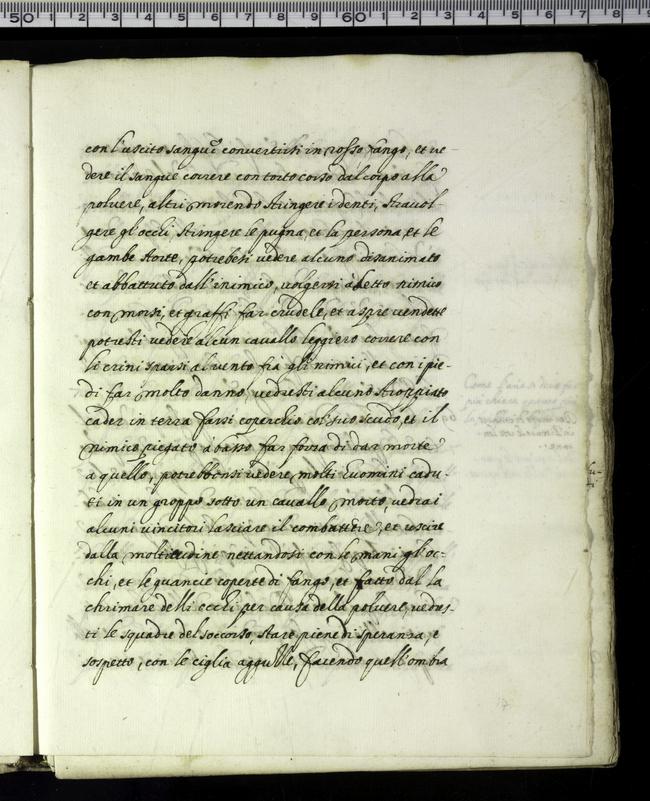 con l'uscito sangue convertirsi in rosso fango, et ve
dere il sangue correre con torto corso dal corpo alla
polvere, altri morendo stringere i denti, stravol-
gere gl'occhi, stringere le pugna, et la persona, et le
gambe storte, potrebesi vedere alcuno disarmato
et abbattuto dall'inimico, volgersi a detto nimico
con morsi, et graffi far crudele, et aspre vendette
potresti vedere alcun cavallo leggiero correre con
li crini sparsi al vento frà gli nimici, et con i pie-
di far molto danno, vedresti alcuno stroppiato
cader in terra farsi coperchio col suo scudo, et il
nimico piegato à basso far forza di dar morte
a quello, potrebbonsi vedere molti huomini cadu-
ti in un groppo sotto un cavallo morto, vedrai
alcuni vincitori lasciare il combattere, et uscire
dalla moltitudine nettandosi con le mani gl'oc-
chi, et le guancie coperte di fango, et fatto dal la
chrimare delli occhi per causa della polvere, vedres-
ti le squadre del soccorso, stare piene di speranza, e
sospetto, con le ciglia agguzze, facendo quell'ombra